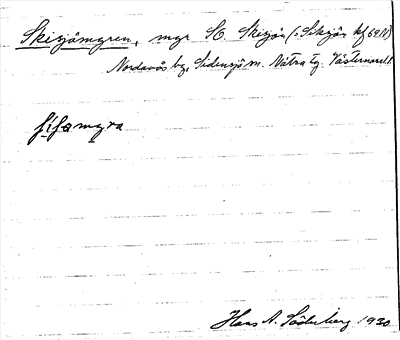 Skisjömyren, myr SO Skisjön (: Siksjön kf 69 N)
Nordanås by, Sidensjö sn. Nätra tg. Västernorrl. l.
fifamyra
Hans A. Söderberg 1930